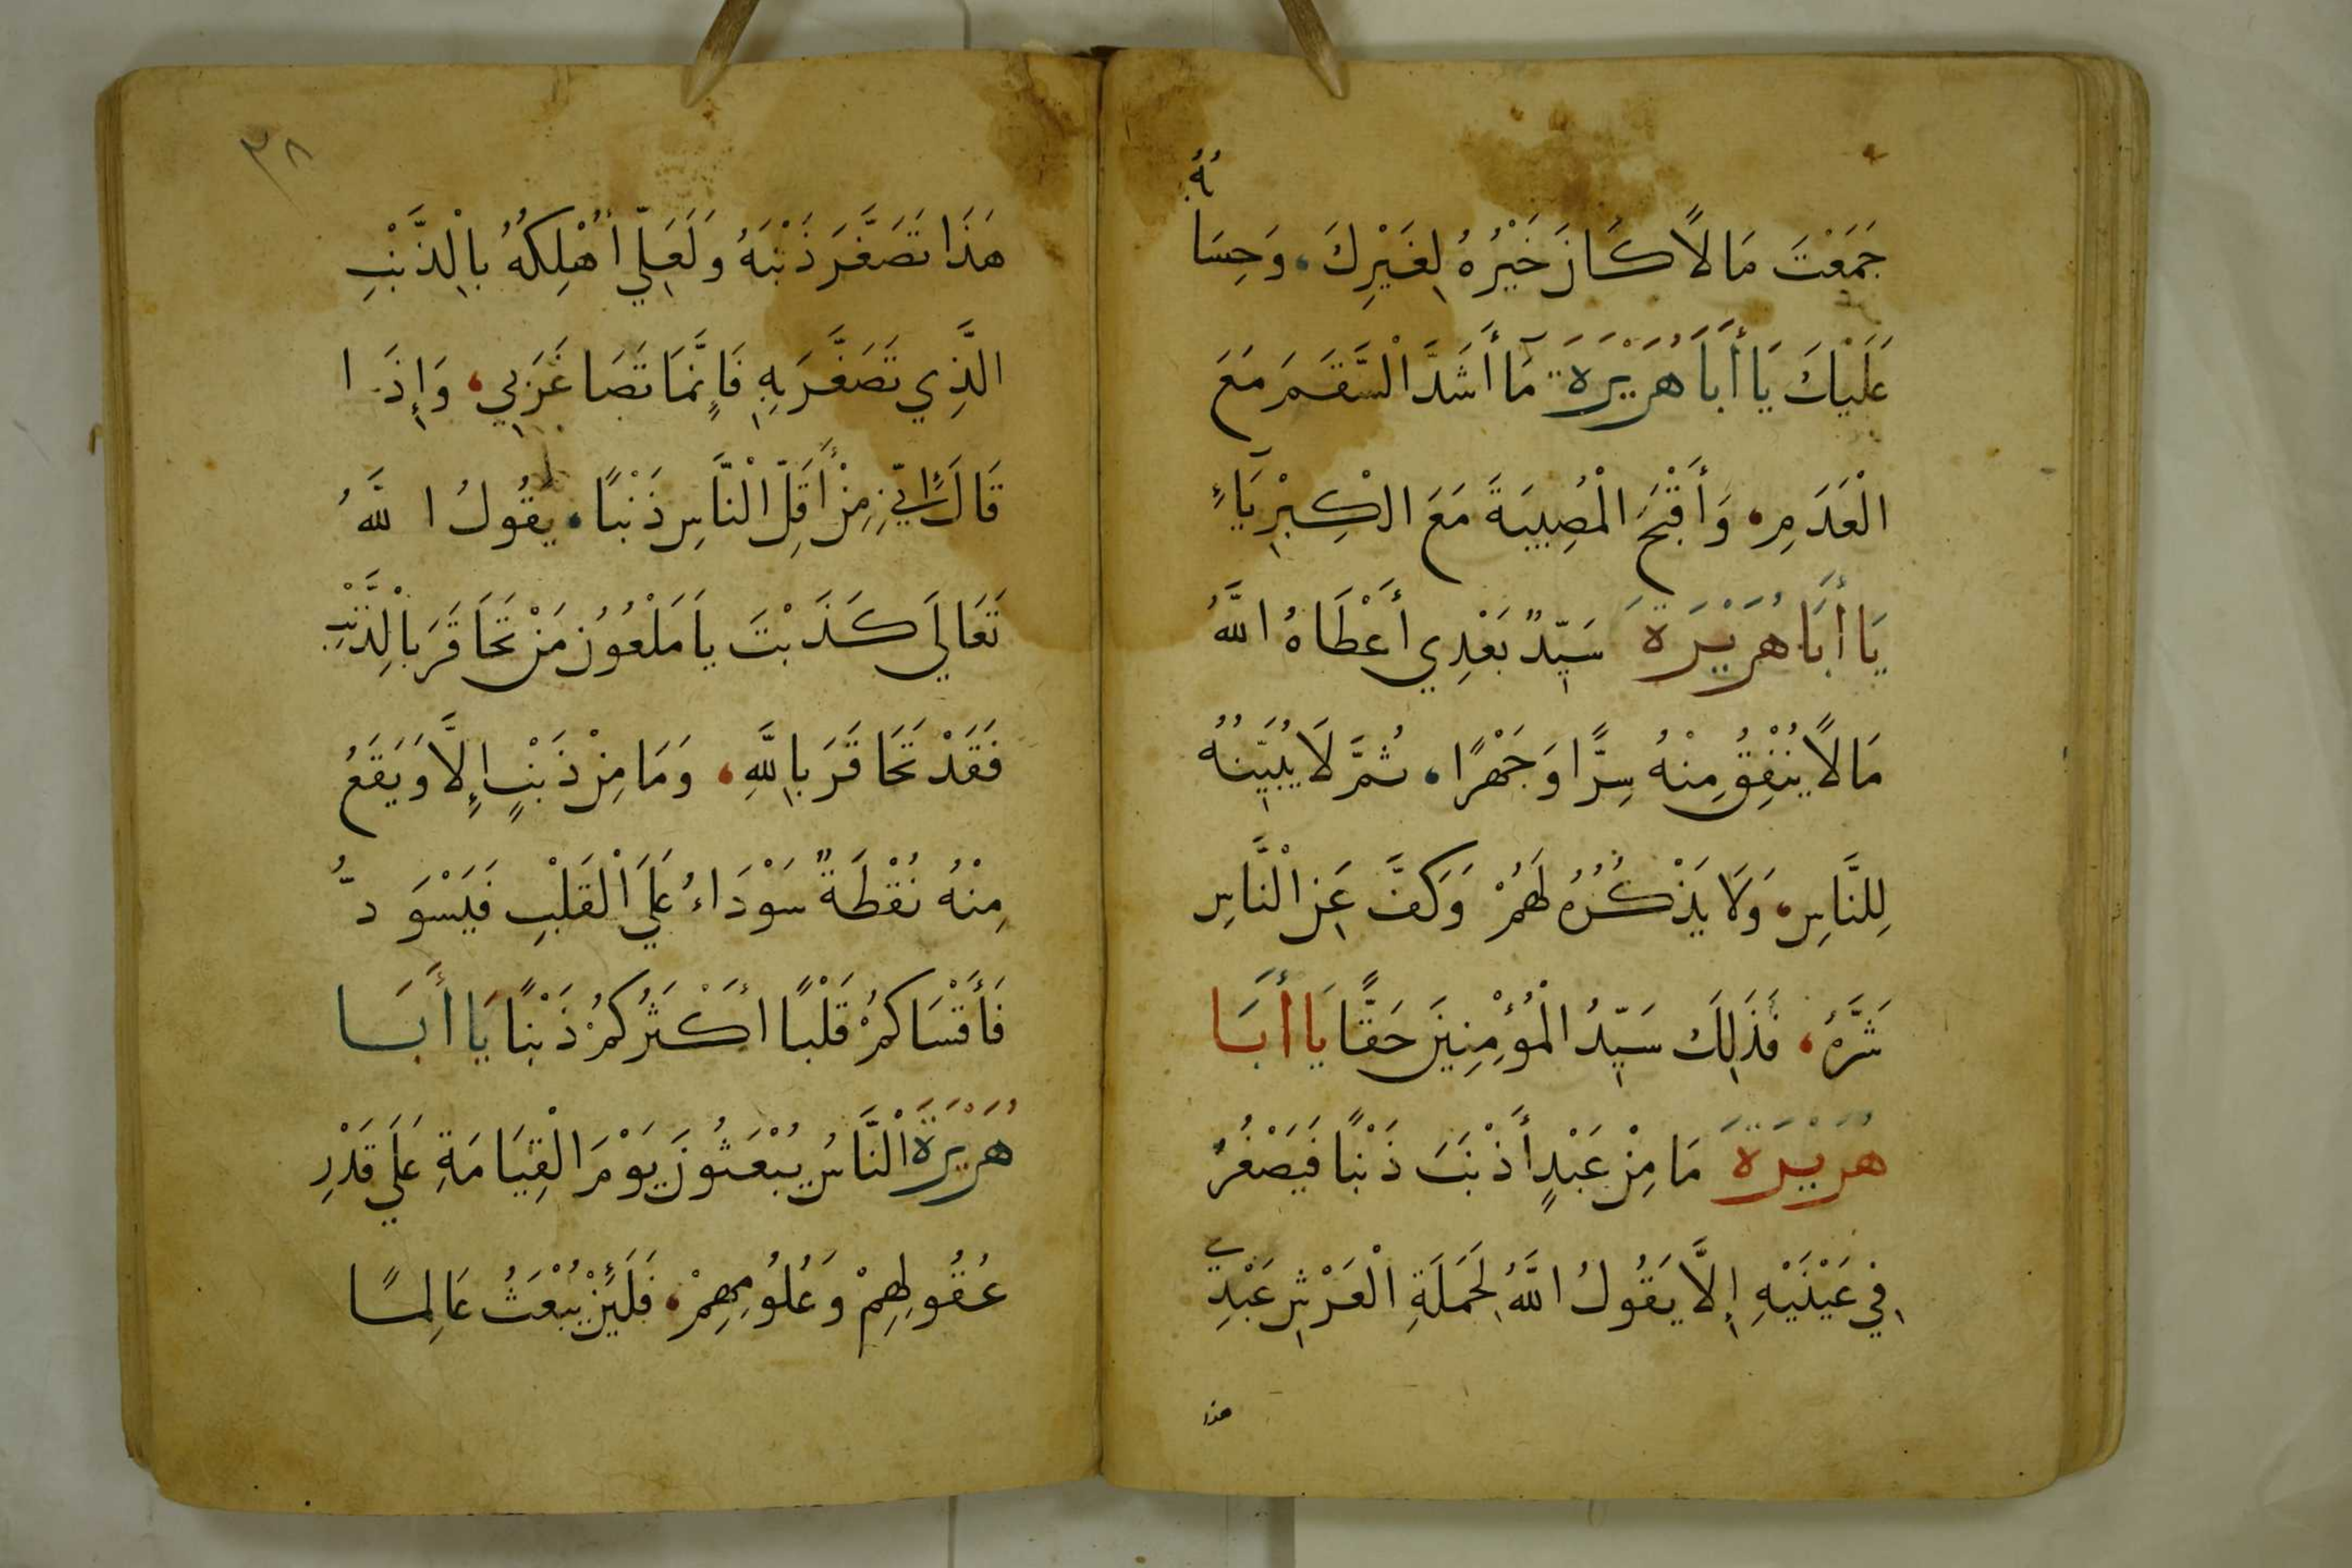 جَمَعْتَ مَالًا كَانَ خَيْرُهُ لِغَيْرِكَ، وَحِسَابُهُ
عَلَيْكَ يَا أَبَا هُرَيْرَةَ مَا أَشَدَّ الْسَّقَمَ مَعَ
الْعَدَمِ، وَأَقْبَحَ الْمُصِيبَةَ مَعَ الْكِبْرِيَآءِ
يَا أَبَا هُرَيْرَةَ سَيِّدٌ بَعْدِي أَعْطَاهُ اللَّهُ
مَالًا يُنْفِقُ مِنْهُ سِرًّا وَجَهْرًا، ثُمَّ لَا يُبَيِّنُهُ
لِلنَّاسِ، وَلَا يَذْكُرُهُ لَهُمْ وَكَفَّ عَنِ الْنَّاسِ
شَرَّهُ، فَذَلِكَ سَيِّدُ الْمُؤْمِنِينَ حَقًّا يَا أَبَا
هُرَيْرَةَ مَا مِنْ عَبْدٍ أَذْنَبَ ذَنْبًا فَيَصْغُرُ
فِي عَيْنَيْهِ إِلَّا يَقُولُ اللَّهُ لِحَمَلَةِ الْعَرْشِ عَبْدِي
هذا
٣٨
هَذَا تَصَغَّرَ ذَنْبَهُ وَلَعَلِّي أُهْلِكُهُ بِالْذَّنْبِ
الَّذِي تَصَغَّرَ بِهِ فَإِنَّمَا تَصَاغَرَ بِي، وَإِذَا
قَالَ إِنِّي مِنْ أَقَلِّ الْنَّاسِ ذَنْبًا، يَقُولُ اللَّهُ
تَعَالَي كَذَبْتَ يَا مَلْعُوُن مَنْ تَحَاقَرَ بِالْذَّنْبِ
فَقَدْ تَحَاقَرَ بِاللَّهِ، وَمَا مِنْ ذَنْبٍ إِلَّا وَيَقَعُ
مِنْهُ نُقْطَةٌ سَوْدَاءُ عَلَي الْقَلْبِ فَيَسْوَدُّ
فَأَقْسَاكُمْ قَلْبًا أَكْثَرُكُمْ ذَنْبًا يَا أَبَا
هُرَيْرَةَ الْنَّاسُ يُبْعَثُونَ يَوْمَ الْقِيَامَةِ عَلَي قَدْرِ
عُقُولِهِمْ وَعُلُومِهِمْ، فَلَئِنْ يُبْعَثُ عَالِمًا